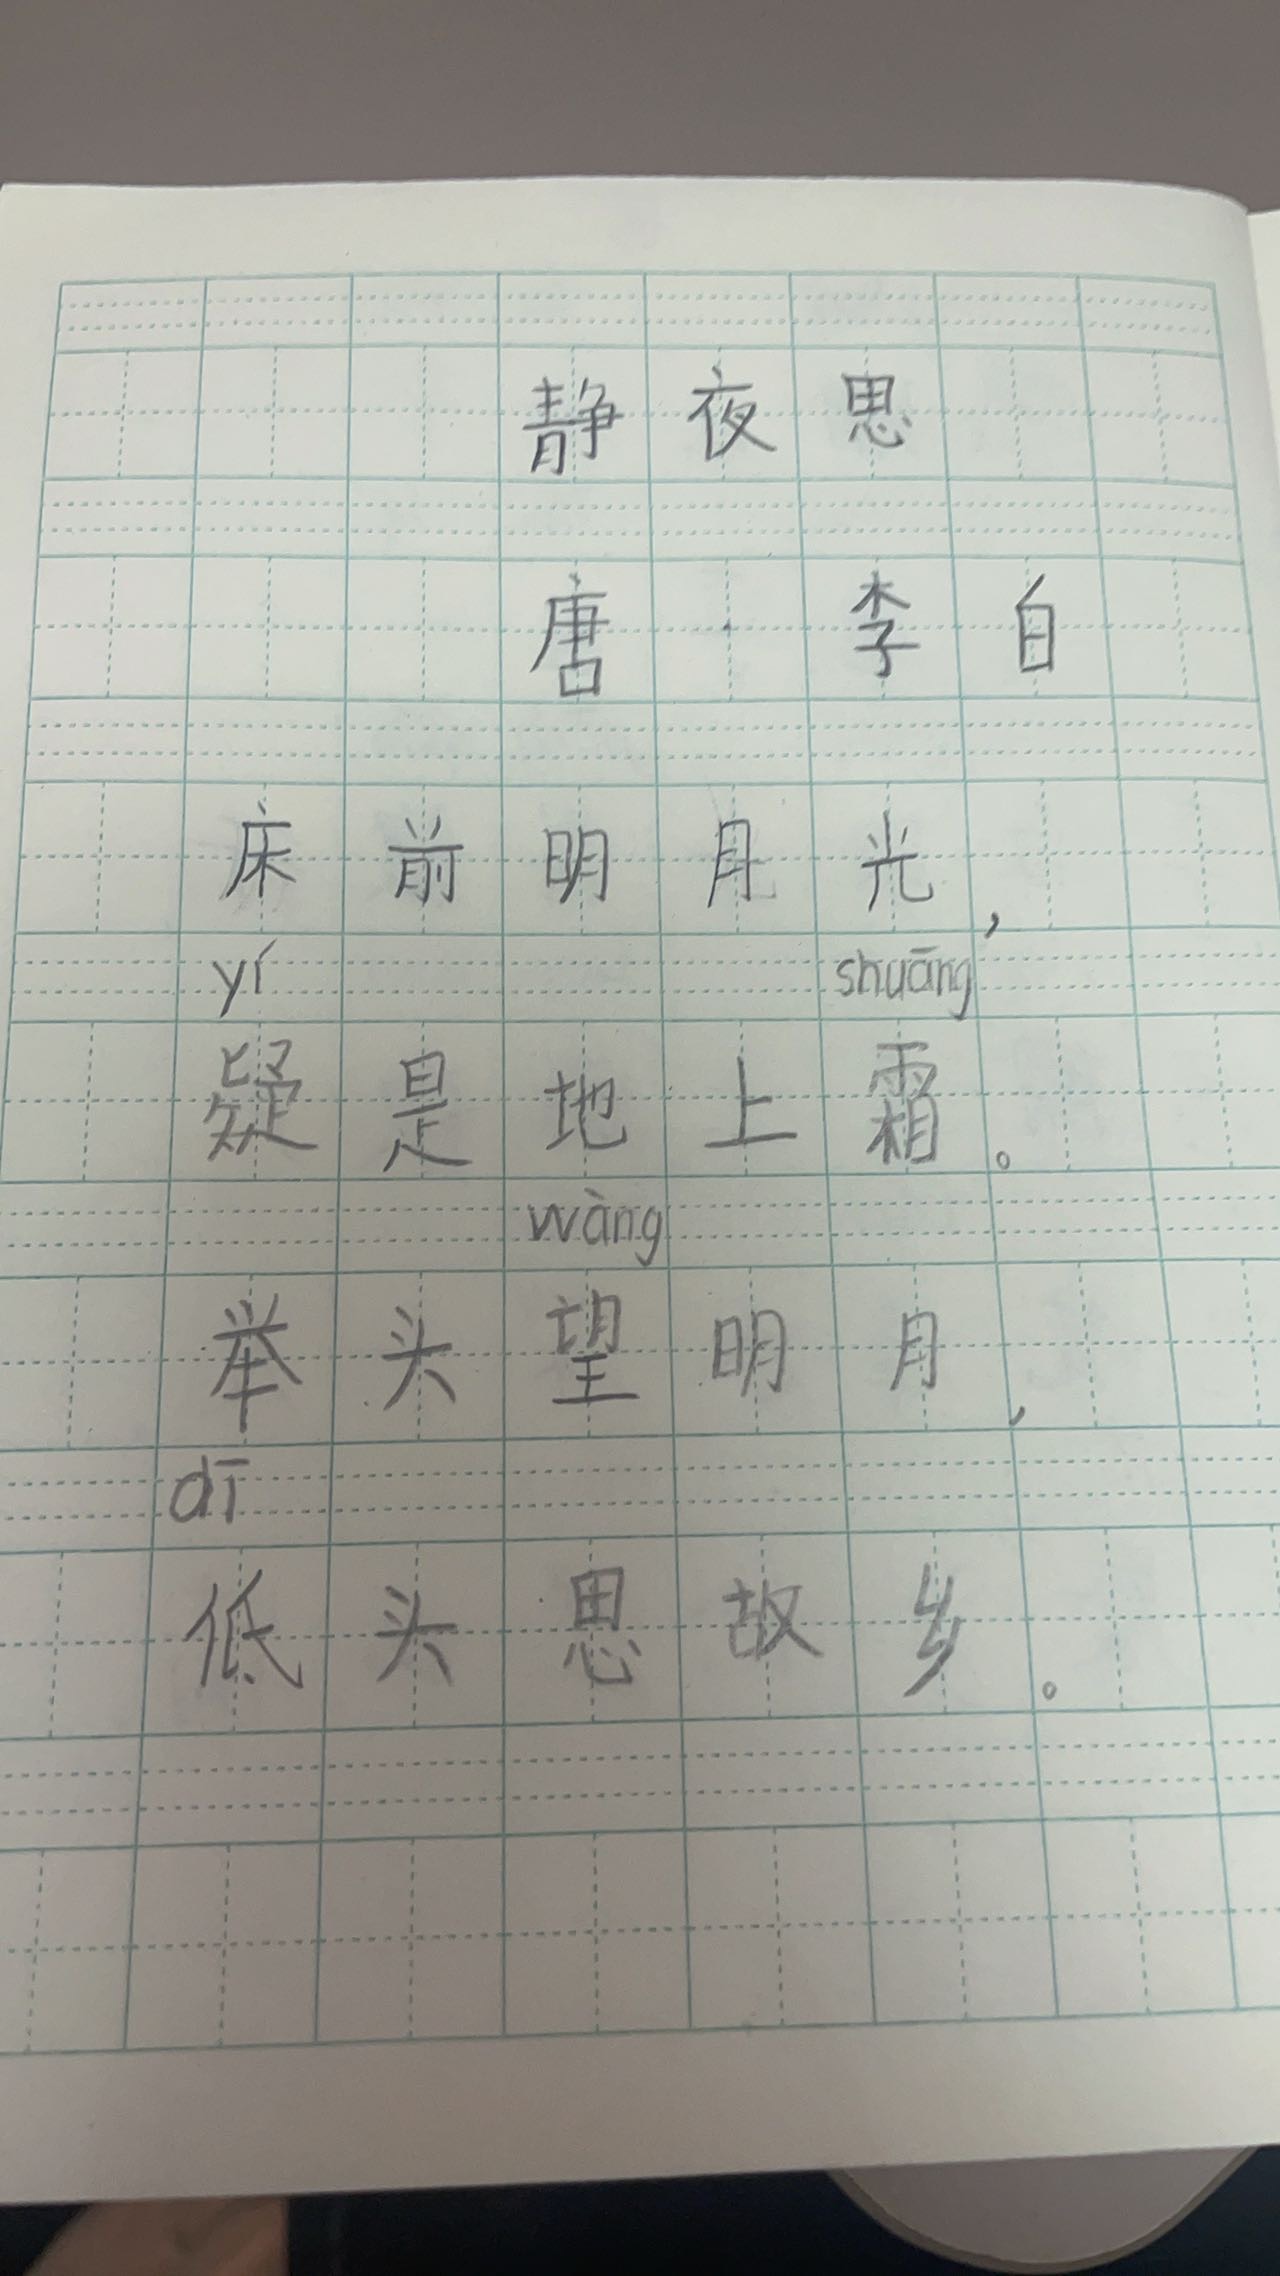 静夜思
唐·李白
床前明月光，
yí shuāng
疑是地上霜。
wàng
举头望明月，
dī
低头思故乡。